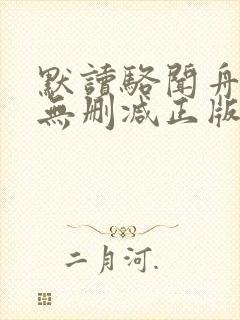 默讀駱聞舟
無删减正版
二月河.